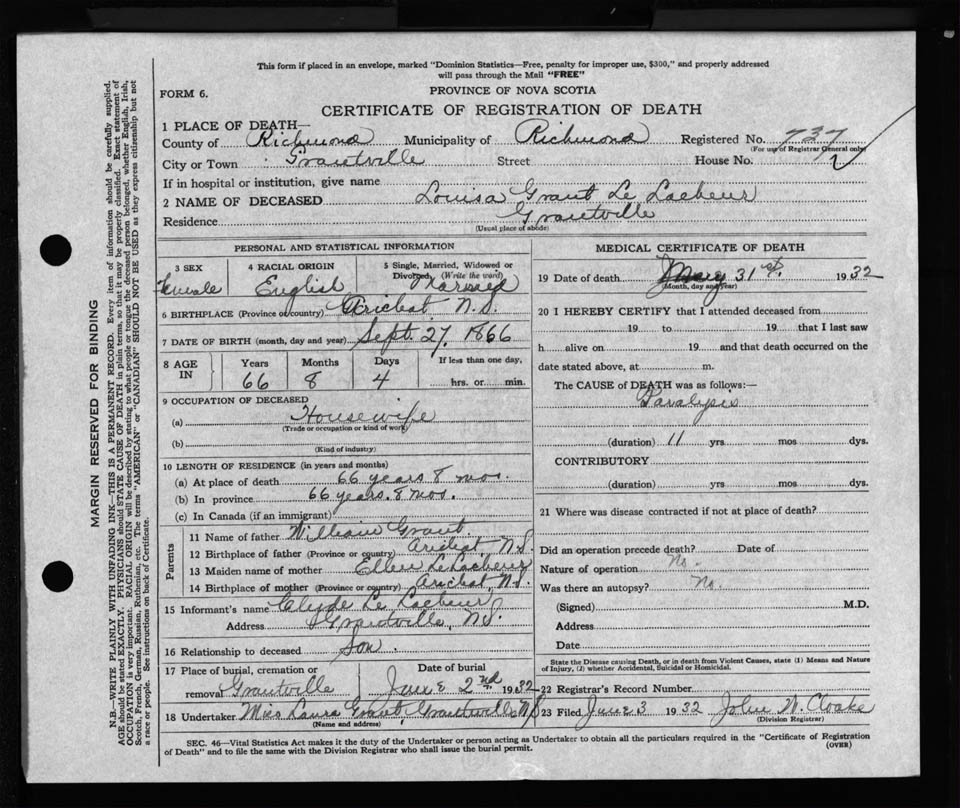 This form if placed in an envelope, marked "Dominion Statistics—Free, penalty for improper use, $300," and properly addressed
will pass through the Mail "FREE"
FORM 6.
PROVINCE OF NOVA SCOTIA
CERTIFICATE OF REGISTRATION OF DEATH
1 PLACE OF DEATH—
County of Richmond Municipality of Richmond Registered No. 737
(For use of Registrar General only)
City or Town Grantville Street House No.
If in hospital or institution, give name
2 NAME OF DECEASED Louisa Grant Le Lacheur
Residence Grantville
(Usual place of abode)
PERSONAL AND STATISTICAL INFORMATION
3 SEX female
4 RACIAL ORIGIN English
5 Single, Married, Widowed or
Divorced, (Write the word)
Married
6 BIRTHPLACE (Province or country) Arichat N.S.
7 DATE OF BIRTH (month, day and year) Sept. 27, 1866
8 AGE IN Years 66 Months 8 Days 4 If less than one day, hrs. or min.
9 OCCUPATION OF DECEASED
(a) Housewife
(Trade or occupation or kind of work)
(b)
(Kind of industry)
10 LENGTH OF RESIDENCE (in years and months)
(a) At place of death 66 years 8 mos.
(b) In province 66 years. 8 mos.
(c) In Canada (if an immigrant)
Parents
11 Name of father William Grant
12 Birthplace of father (Province or country) Arichat N.S.
13 Maiden name of mother Ellen LeLacheur
14 Birthplace of mother (Province or country) Arichat, N.S.
15 Informant's name Clyde Le Lacheur
Address Grantville, N.S.
16 Relationship to deceased Son
17 Place of burial, cremation or
removal Grantville
Date of burial
June 2nd 1932
18 Undertaker Miss Laura Grant, Grantville N.S
(Name and address)
MEDICAL CERTIFICATE OF DEATH
19 Date of death May 31st. 1932
(Month, day and year)
20 I HEREBY CERTIFY that I attended deceased from
19 to 19 that I last saw
h alive on 19 and that death occurred on the
date stated above, at m.
The CAUSE of DEATH was as follows:—
Paralysis
(duration) 11 yrs mos dys.
CONTRIBUTORY
(duration) yrs mos dys.
21 Where was disease contracted if not at place of death?
Did an operation precede death? No. Date of
Nature of operation
Was there an autopsy? No.
(Signed) M.D.
Address
Date
State the Disease causing Death, or in death from Violent Causes, state (1) Means and Nature
of Injury, (2) whether Accidental, Suicidal or Homicidal.
22 Registrar's Record Number
23 Filed June 3 1932 John W. Cloake
(Division Registrar)
SEC. 46—Vital Statistics Act makes it the duty of the Undertaker or person acting as Undertaker to obtain all the particulars required in the "Certificate of Registration
of Death" and to file the same with the Division Registrar who shall issue the burial permit. (OVER)
MARGIN RESERVED FOR BINDING
N.B.—WRITE PLAINLY WITH UNFADING INK—THIS IS A PERMANENT RECORD. Every item of information should be carefully supplied.
AGE should be stated EXACTLY. PHYSICIANS should STATE CAUSE OF DEATH in plain terms, so that it may be properly classified. Exact statement of
OCCUPATION is very important. RACIAL ORIGIN will be described by stating to what people or tongue the deceased person belonged, whether English, Irish,
Scotch, French, German, Russian, Ruthenian, etc. The terms "AMERICAN" or "CANADIAN" SHOULD NOT BE USED as they express citizenship but not
a race or people. See instructions on back of Certificate.